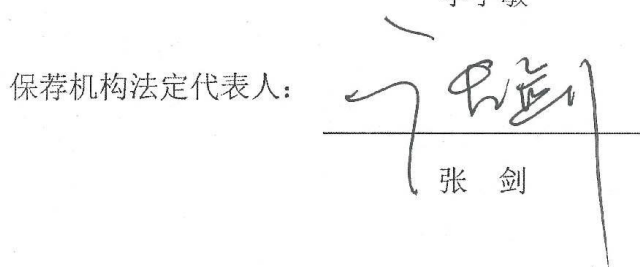 保荐机构法定代表人：
张剑
张 剑